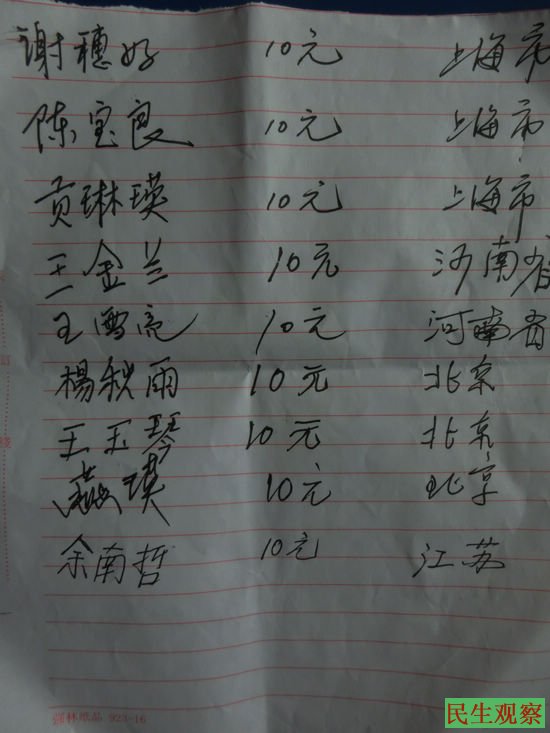 谢穗好 10元 上海市
陈宝良 10元 上海市
贡琳瑛 10元 上海市
王金兰 10元 河南省
王西亮 10元 河南省
楊秋雨 10元 北京
王玉琴 10元 北京
瑛 10元 北京
余南哲 10元 江苏
林纸品 923-16
民生观察